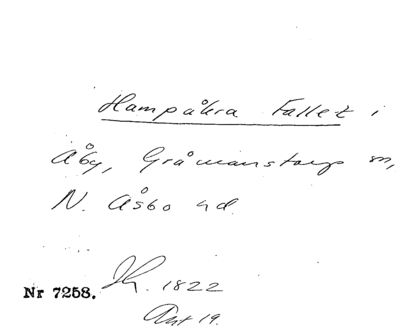 Hampåkra Fallet i
Åby, Gråmanstorps sn,
N. Åsbo hd.
Nr 7258. Jh. 1822
Ant 19.